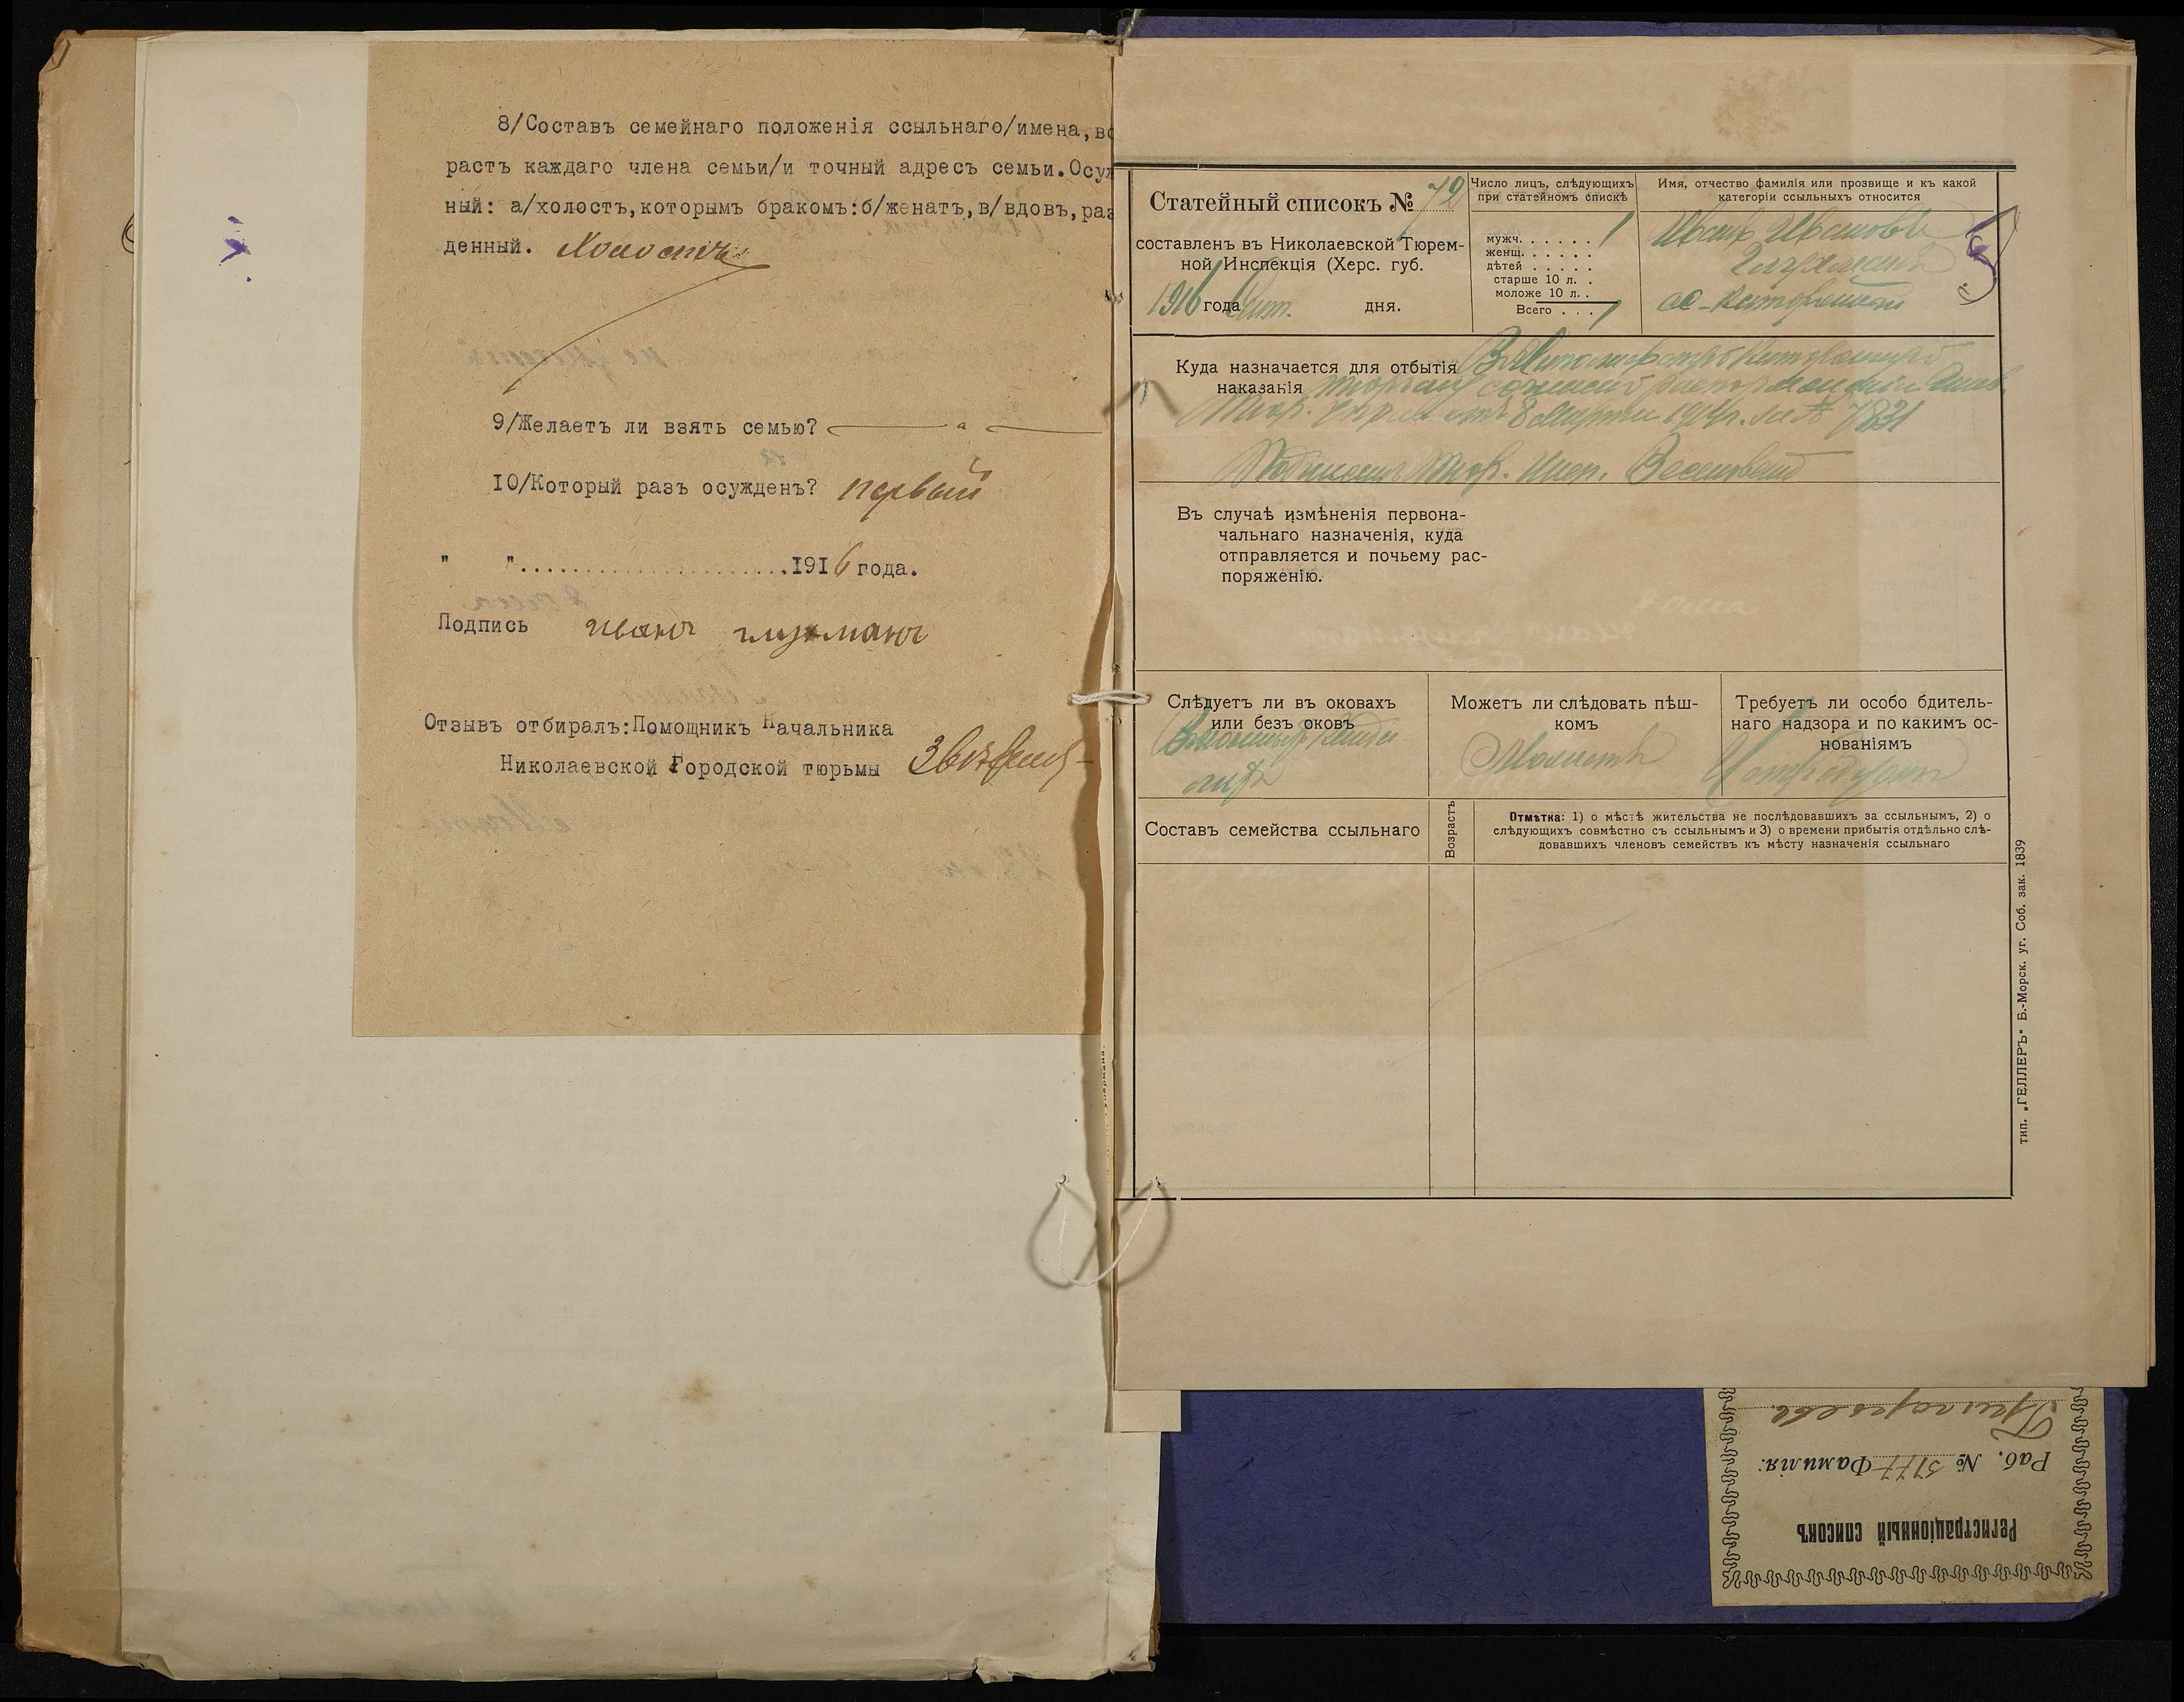 8/Составъ семейнаго положенія ссыльнаго/имена,во
растъ каждаго члена семьи/и точный адресъ семьи.Осуж
ный: а/холостъ,которымъ бракомъ:б/женатъ,в/вдовъ,раз
денный. Холостъ
9/Желаетъ ли взять семью?
10/Который разъ осужденъ? первый
" "......................1916 года.
Подпись иванъ глузманъ
Отзывъ отбиралъ:Помощникъ Начальника
Николаевской Городской тюрьмы
Статейный списокъ № 72
составленъ въ Николаевской Тюрем-
ной Инспекція (Херс. губ.
1916 года дня.
Число лицъ, слѣдующихъ
при статейномъ спискѣ
мужч. . . . . . . 1
женщ. . . . . . .
дѣтей . . . . .
старше 10 л. .
моложе 10 л. .
Всего . . . 1
Имя, отчество фамилія или прозвище и къ какой
категоріи ссыльныхъ относится
Иванъ Ивановъ
Глузманъ
сс-каторжный
Куда назначается для отбытія
наказанія
Тюр. 8 Марта 191 г. за № 7831
Тюр. Инсп.
Въ случаѣ измѣненія первона-
чальнаго назначенія, куда
отправляется и почьему рас-
поряженію.
Слѣдуетъ ли въ оковахъ
или безъ оковъ
Можетъ ли слѣдовать пѣш-
комъ
Можетъ
Требуетъ ли особо бдитель-
наго надзора и по какимъ ос-
нованіямъ
Составъ семейства ссыльнаго
Возрастъ
Отмѣтка: 1) о мѣстѣ жительства не послѣдовавшихъ за ссыльнымъ, 2) о
слѣдующихъ совмѣстно съ ссыльнымъ и 3) о времени прибытія отдѣльно слѣ-
довавшихъ членовъ семействъ къ мѣсту назначенія ссыльнаго
тип. „ГЕЛЛЕРЪ" Б.-Морск. уг. Соб. зак. 1839
Регистраціонный списокъ
Раб. № 5177 Фамилія:
Григорьева